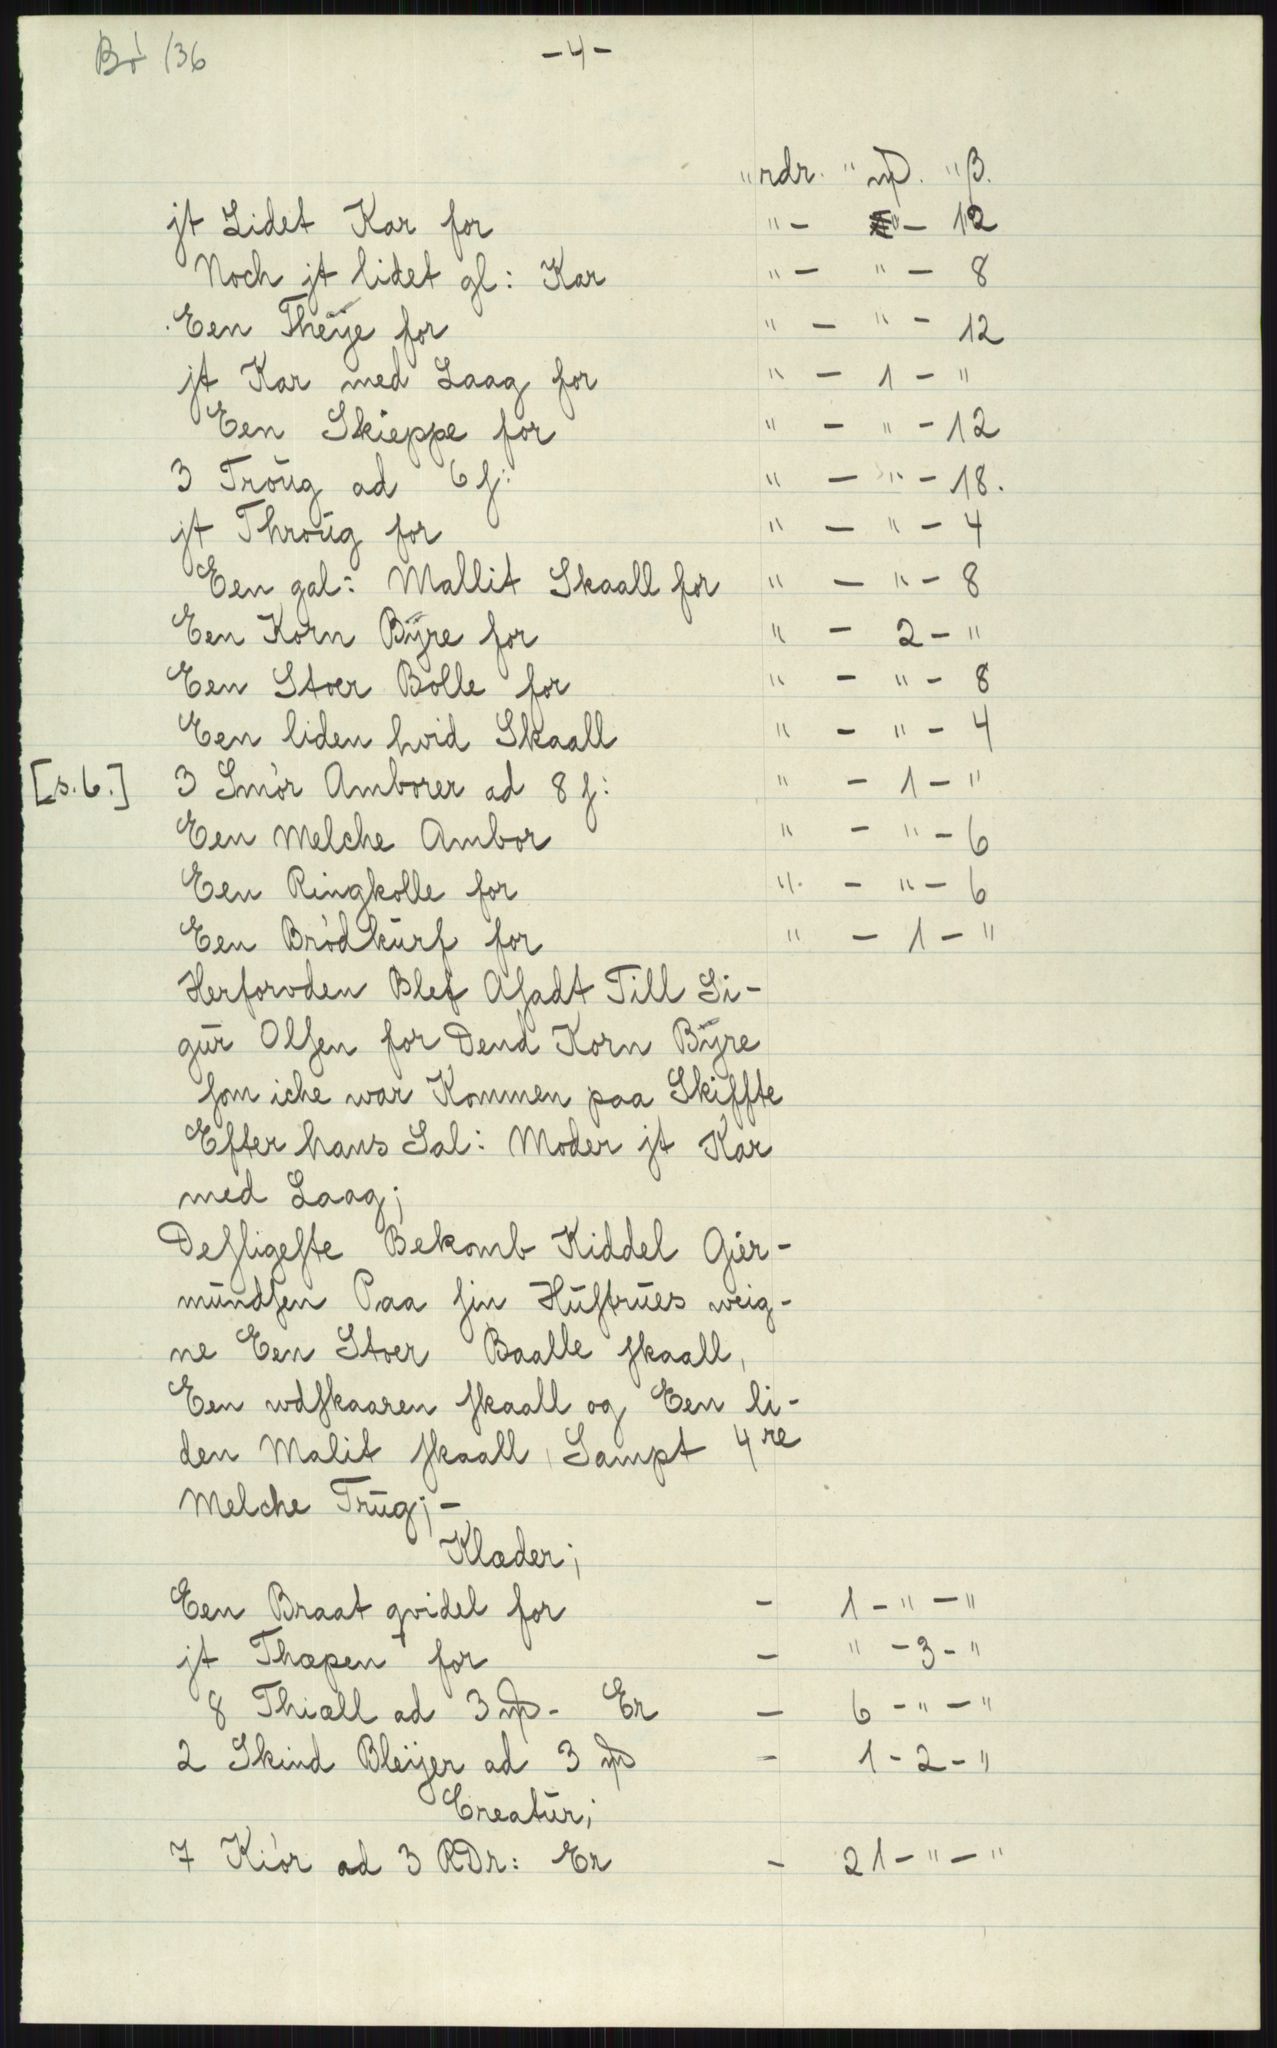 Bö 136
-4-
" rdr. " mp. " β.
jt Lidet Kar for " - " - 12
Noch jt lidet gl: Kar " - " - 8
Een Theÿe for " - " - 12
jt Kar med Laag for " - 1 - "
Een Skieppe for " - " - 12
3 Troŭg ad 6 ſ: " - " - 18.
jt Throŭg for " - " - 4
Een gal: Mallit Skaall for " - " - 8
Een Korn Bÿre for " - 2 - "
Een Stoer Bolle for " - " - 8
Een liden hvid Skaall " - " - 4
[s. 6.] 3 Smör Amborer ad 8 ſ: " - 1 - "
Een Melche Ambor " - " - 6
Een Ringkolle for " - " - 6
Een Brödkŭrf for " - 1 - "
Herforvden Blef Aſadt Till Si-
gŭr Olſen for Dend Korn Bÿre
ſom iche war Kommen paa Skiffte
Efter hans Sal: Moder jt Kar
med Laag;
Deſligeſte Bekomb Kiddel Gier-
mŭndſen Paa ſin Hŭſtrŭes weig-
ne Een Stoer Baalle ſkaall,
Een wdſkaaren ſkaall og Een li-
den Malit ſkaall, Sampt 4re
Melche Trŭg; -
Klæder;
Een Braat qvidel for - 1 - " - "
jt Thæpen for - " - 3 - "
8 Thiæll ad 3 mp - Er - 6 - " - "
2 Skind Bleÿer ad 3 mp - 1 - 2 - "
Creatŭr;
7 Kiör ad 3 RDr: Er - 21 - " - "